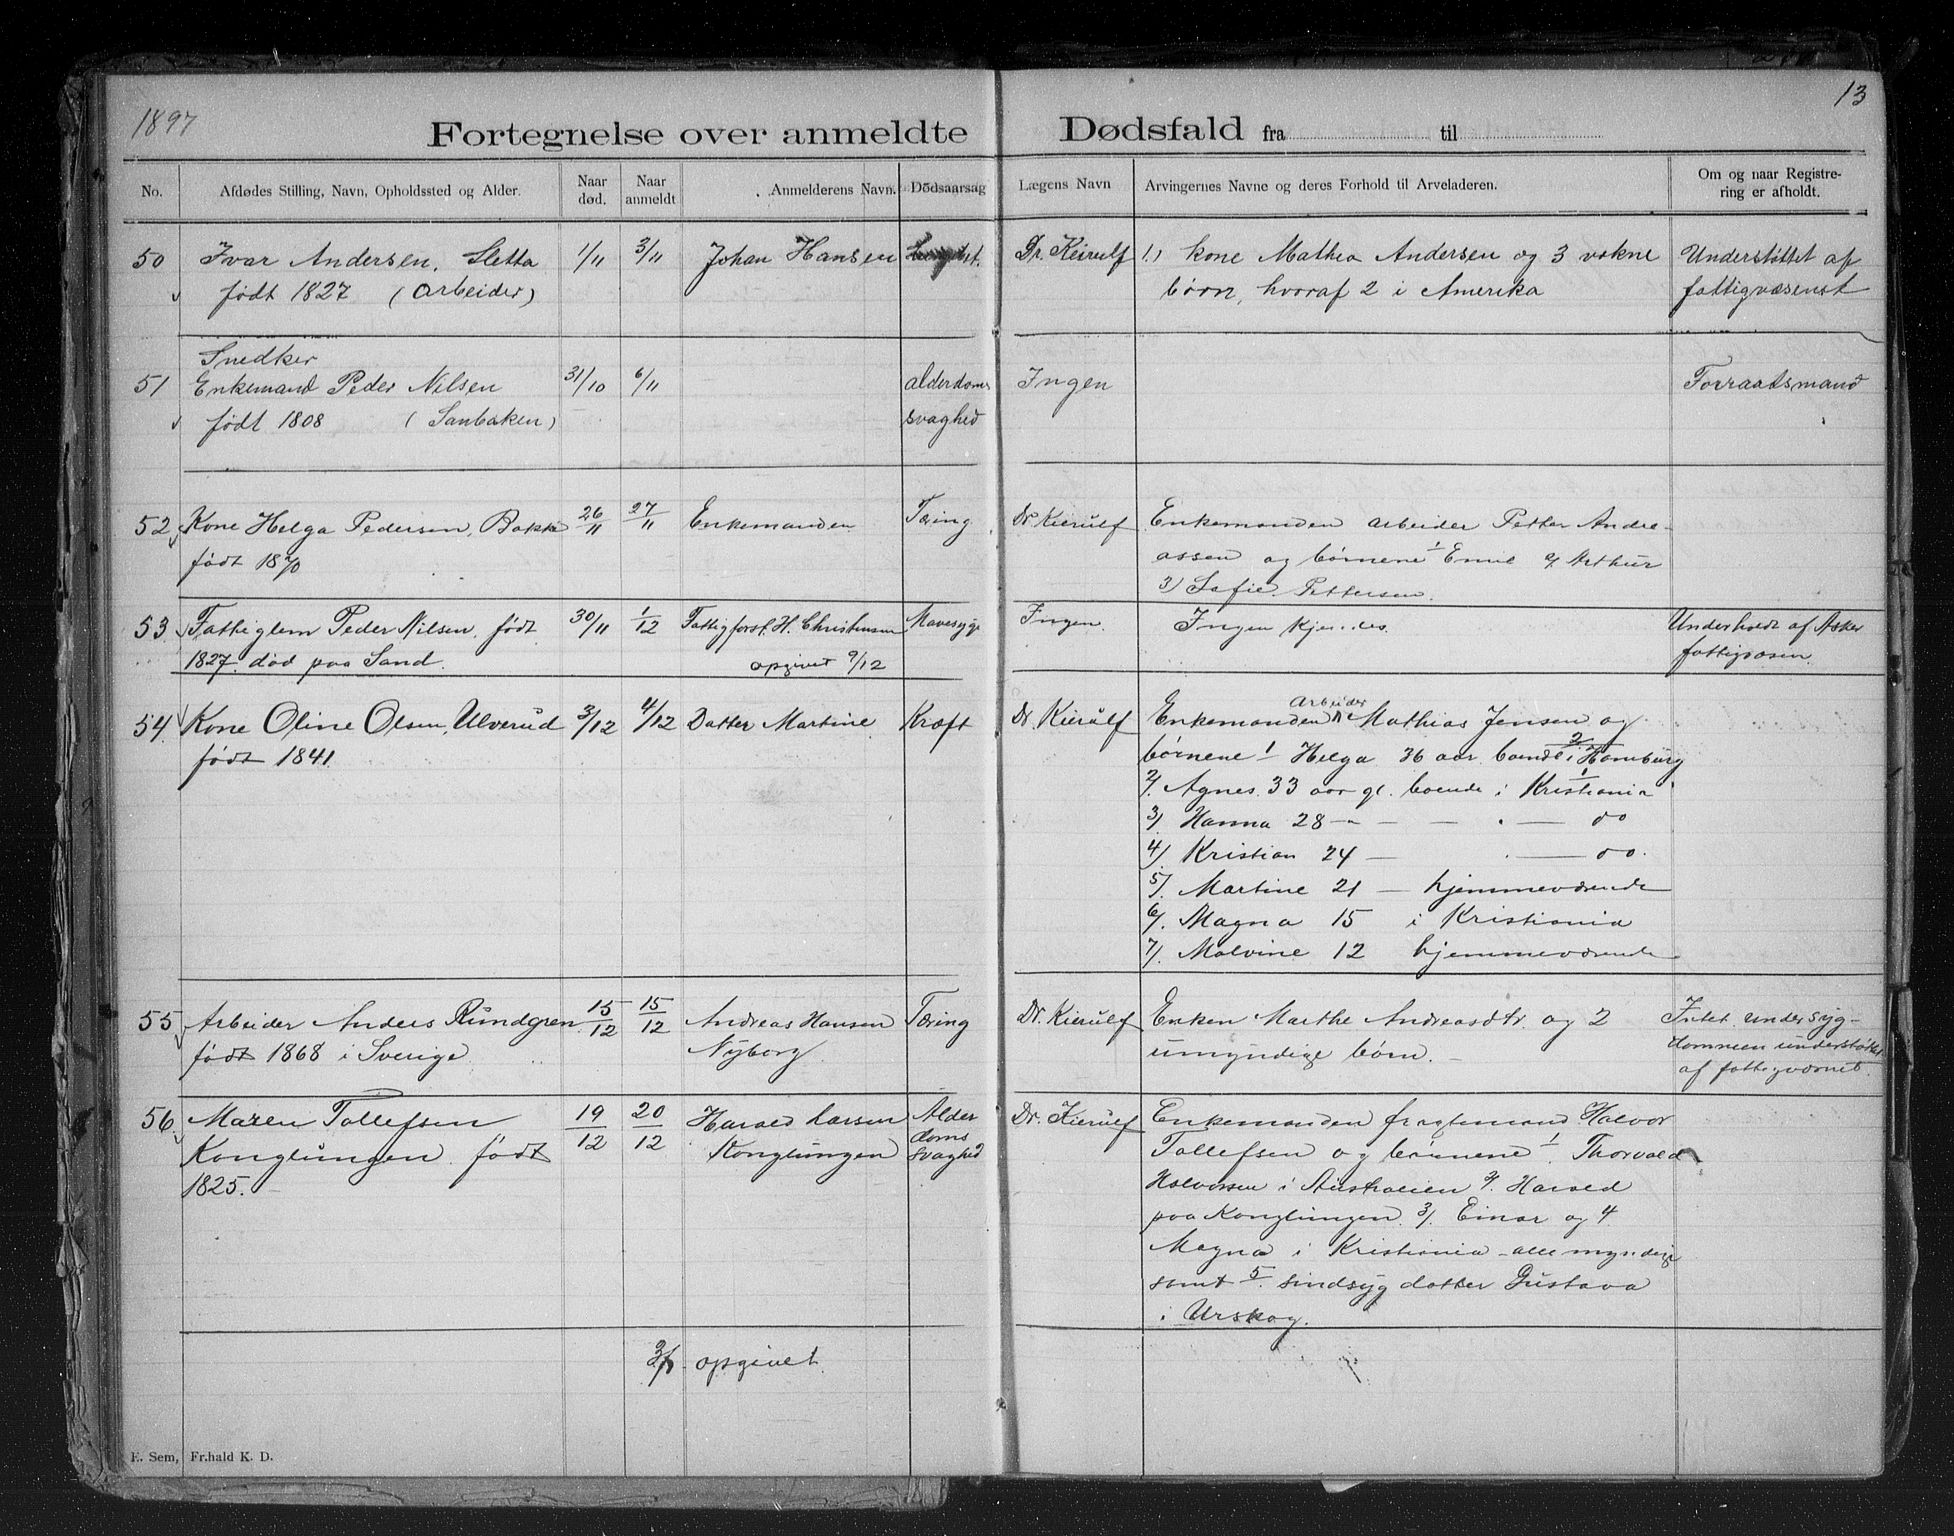 1897
13
Fortegnelse over anmeldte Dødsfald fra til
No. Afdødes Stilling, Navn, Opholdssted og Alder. Naar død. Naar anmeldt Anmelderens Navn. Dødsaarsag Lægens Navn Arvingernes Navne og deres Forhold til Arveladeren. Om og naar Registrering er afholdt.
50 Ivar Andersen, Sletta 1/11 3/11 Johan Hansen Dr. Keirulf 1.) kone Mathea Andersen og 3 vokne Understøttet af
født 1827 (Arbeider) børn, hvoraf 2 i Amerika fattigvæsenet
Snedker
51 Enkemand Peder Nilsen 31/10 6/11 alderdoms Ingen Forraadsmand
født 1808 (Sanbakken) svaghed
52 Kone Helga Pedersen, Bakke 26/11 27/11 Enkemanden Tæring Dr Kierulf Enkemanden arbeider Petter Andre-
født 1870 assen og børnene 1 Emil 2/ Arthur
3) Sofie Pettersen.
53 Fattiglem Peder Nilsen, født 30/11 1/12 Fattigforst. H. Christensen Mavesyge Ingen. Ingen kjendes. Underholdt af Asker
1827. død paa Sand. opgivet 9/12 fattigvæsen.
54. Kone Oline Olsen, Ulverud 3/12 4/12 Datter Martine Kræft Dr. Kierulf Enkemanden Arbeider Mathias Jensen og
født 1841 børnene 1 Helga 36 aar boende i Hamburg
2/. Agnes. 33 aar gl. boende i Kristiania
3/ Hanna 28 — — — do
4/. Kristian 24 — — do.
5/. Martine 21 — hjemmeværende
6/. Magna 15 i Kristiania
7/. Malvine 12 hjemmeværende
55 Arbeider Anders Rundgren 15/12 15/12 Andreas Hansen Tæring Dr. Kierulf Enken Marthe Andreasdtr og 2 Intet. under syg-
født 1868 i Sverige Nyborg umyndige børn. dommen understøttet
af fattigvæsnet.
56 Maren Tollefsen 19/12 20/12 Harald Larsen Alder Dr. Kierulf Enkemanden fragtemand Halvor
Konglungen født Konglungen doms Tollefsen og børnene 1. Thorvald
1825. svaghed Halvorsen i Australien 2/. Harald
paa Konglungen. 3/. Einar og 4
Magna i Kristiania - alle myndige
samt 5. sindsyg datter Gustava
i Urskog.
opgivet
E. Sem, Fr.hald K. D.